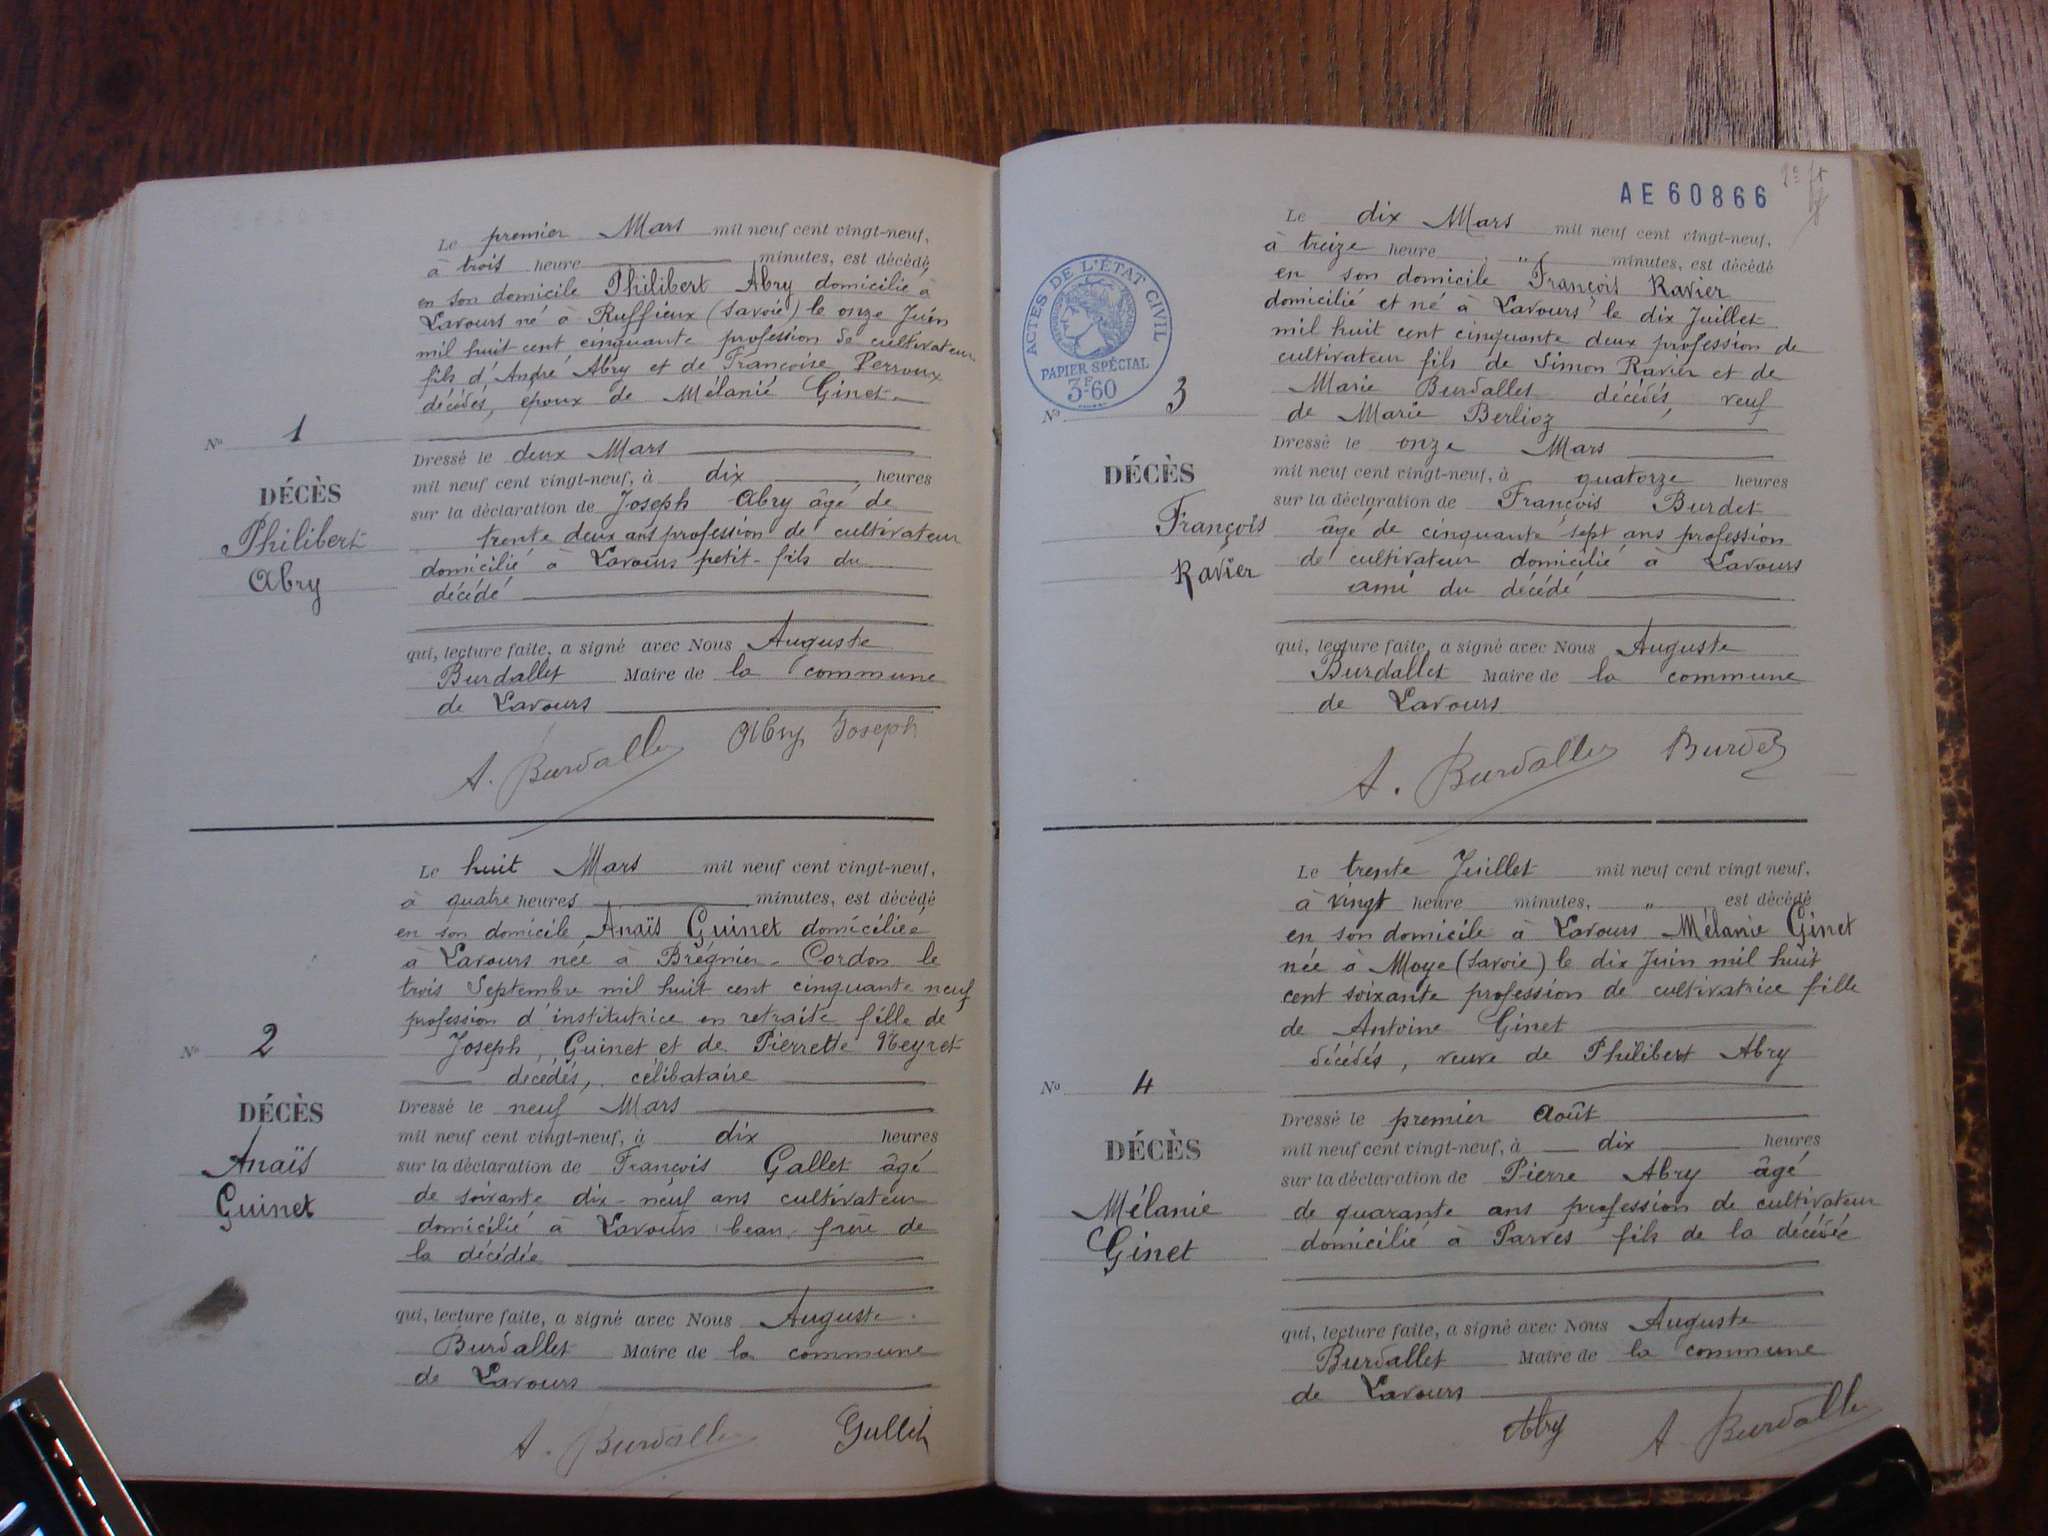 Le premier Mars mil neuf cent vingt-neuf,
à trois heure minutes, est décédé
en son domicile Philibert Abry domicilié à
Lavours né à Ruffieux (Savoie) le onze Juin
mil huit cent cinquante profession de cultivateur
fils d'André Abry et de Françoise Perroux
décédés, époux de Mélanie Ginet
No 1
DÉCÈS
Philibert
Abry
Dressé le deux Mars
mil neuf cent vingt-neuf, à dix heures
sur la déclaration de Joseph Abry âgé de
trente deux ans profession de cultivateur
domicilié à Lavours petit-fils du
décédé
qui, lecture faite, a signé avec Nous Auguste
Burdallet Maire de la commune
de Lavours
A. Burdallet Abry Joseph
Le huit Mars mil neuf cent vingt-neuf,
à quatre heures minutes, est décédé
en son domicile Anaïs Guinet domiciliée
à Lavours née à Brégnier-Cordon le
trois Septembre mil huit cent cinquante neuf
profession d'institutrice en retraite fille de
Joseph Guinet et de Pierrette Neyret
décédés, célibataire
No 2
DÉCÈS
Anaïs
Guinet
Dressé le neuf Mars
mil neuf cent vingt-neuf, à dix heures
sur la déclaration de François Gallet âgé
de soixante dix-neuf ans cultivateur
domicilié à Lavours beau-frère de
la décédée
qui, lecture faite, a signé avec Nous Auguste
Burdallet Maire de la commune
de Lavours
A. Burdallet Gallet
AE 60866
ACTES DE L'ÉTAT CIVIL
PAPIER SPÉCIAL
3F60
Le dix Mars mil neuf cent vingt-neuf,
à treize heure " minutes, est décédé
en son domicile François Ravier
domicilié et né à Lavours le dix Juillet
mil huit cent cinquante deux profession de
cultivateur fils de Simon Ravier et de
Marie Burdallet décédés, veuf
de Marie Berlioz
No 3
DÉCÈS
François
Ravier
Dressé le onze Mars
mil neuf cent vingt-neuf, à quatorze heures
sur la déclaration de François Burdet
âgé de cinquante sept ans profession
de cultivateur domicilié à Lavours
ami du décédé
qui, lecture faite, a signé avec Nous Auguste
Burdallet Maire de la commune
de Lavours
A. Burdallet Burdet
Le trente Juillet mil neuf cent vingt neuf,
à vingt heure minutes, " est décédé
en son domicile à Lavours Mélanie Ginet
née à Moye (Savoie) le dix Juin mil huit
cent soixante profession de cultivatrice fille
de Antoine Ginet
décédés, veuve de Philibert Abry
No 4
DÉCÈS
Mélanie
Ginet
Dressé le premier Août
mil neuf cent vingt-neuf, à dix heures
sur la déclaration de Pierre Abry âgé
de quarante ans profession de cultivateur
domicilié à Parves fils de la décédée
qui, lecture faite, a signé avec Nous Auguste
Burdallet Maire de la commune
de Lavours
Abry A. Burdallet